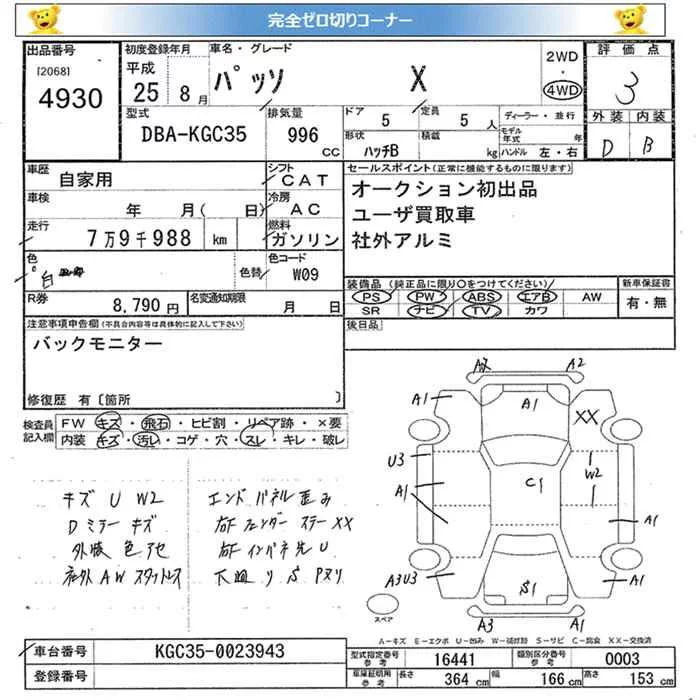 完全ゼロ切りコーナー
出品番号
[2068]
4930
初度登録年月
平成
25 8 月
車名・グレード
パッソ X
2WD
・
4WD
評価点
3
外装 内装
D B
型式
DBA-KGC35
排気量
996
CC
ドア
5
定員
5 人
形状
ハッチB
積載
kg
ディーラー・並行
モデル年式 年
ハンドル 左・右
車歴
自家用
シフト
CAT
車検
年 月( 日)
冷房
AC
走行
7万9千988 km
燃料
ガソリン
色
白
色替
色コード
W09
R券
8,790 円
名変通知期限
月 日
セールスポイント(正常に機能するものに限ります)
オークション初出品
ユーザ買取車
社外アルミ
装備品(純正品に限り○をつけてください)
PS PW ABS エアB AW
SR ナビ TV カワ
新車保証書
有・無
後日品
注意事項申告欄(不具合内容等は具体的に記入して下さい)
バックモニター
修復歴 有〔箇所 〕
検査員
記入欄
FW キズ・飛石・ヒビ割・リペア跡・×要
内装 キズ・汚レ・コゲ・穴・スレ・キレ・破レ
キズ U W2
Dミラーキズ
外装 色アセ
社外AW スタットレス
エンドパネル歪み
右Fフェンダー ステー XX
右Fインパネ先U
下廻り S Pヌリ
A2
A1
A1
XX
U3
W2
A1
C1
A1
A3U3
S1
A1
A3
A1
スペア
A-キズ E-エクボ U-凹み W-補修跡 S-サビ C-腐食 XX-交換済
車台番号
KGC35-0023943
登録番号
型式指定番号
参考
16441
類別区分番号
参考
0003
車庫証明用
参考
長さ
364 cm
幅
166 cm
高さ
153 cm